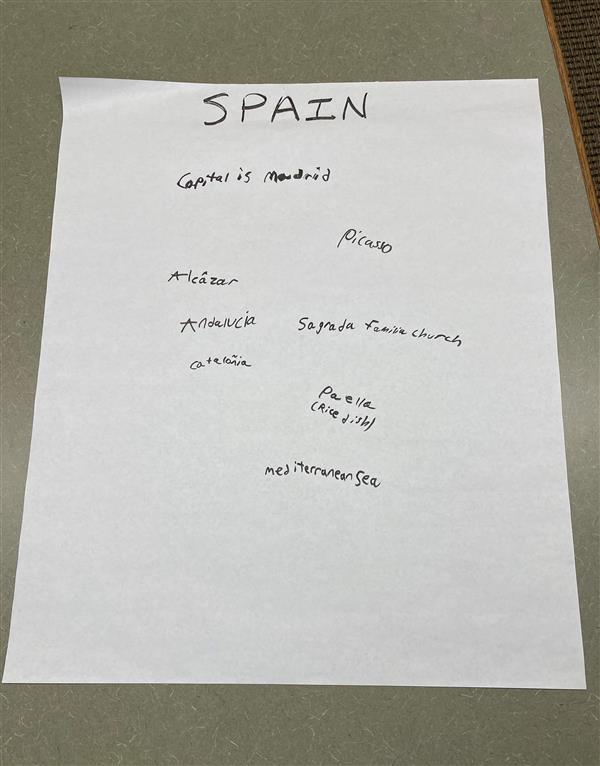 SPAIN
Capital is Madrid
Picasso
Alcâzar
Andalucia
Sagrada Familia church
cataloñia
Paella
(Rice dish)
mediterranean Sea